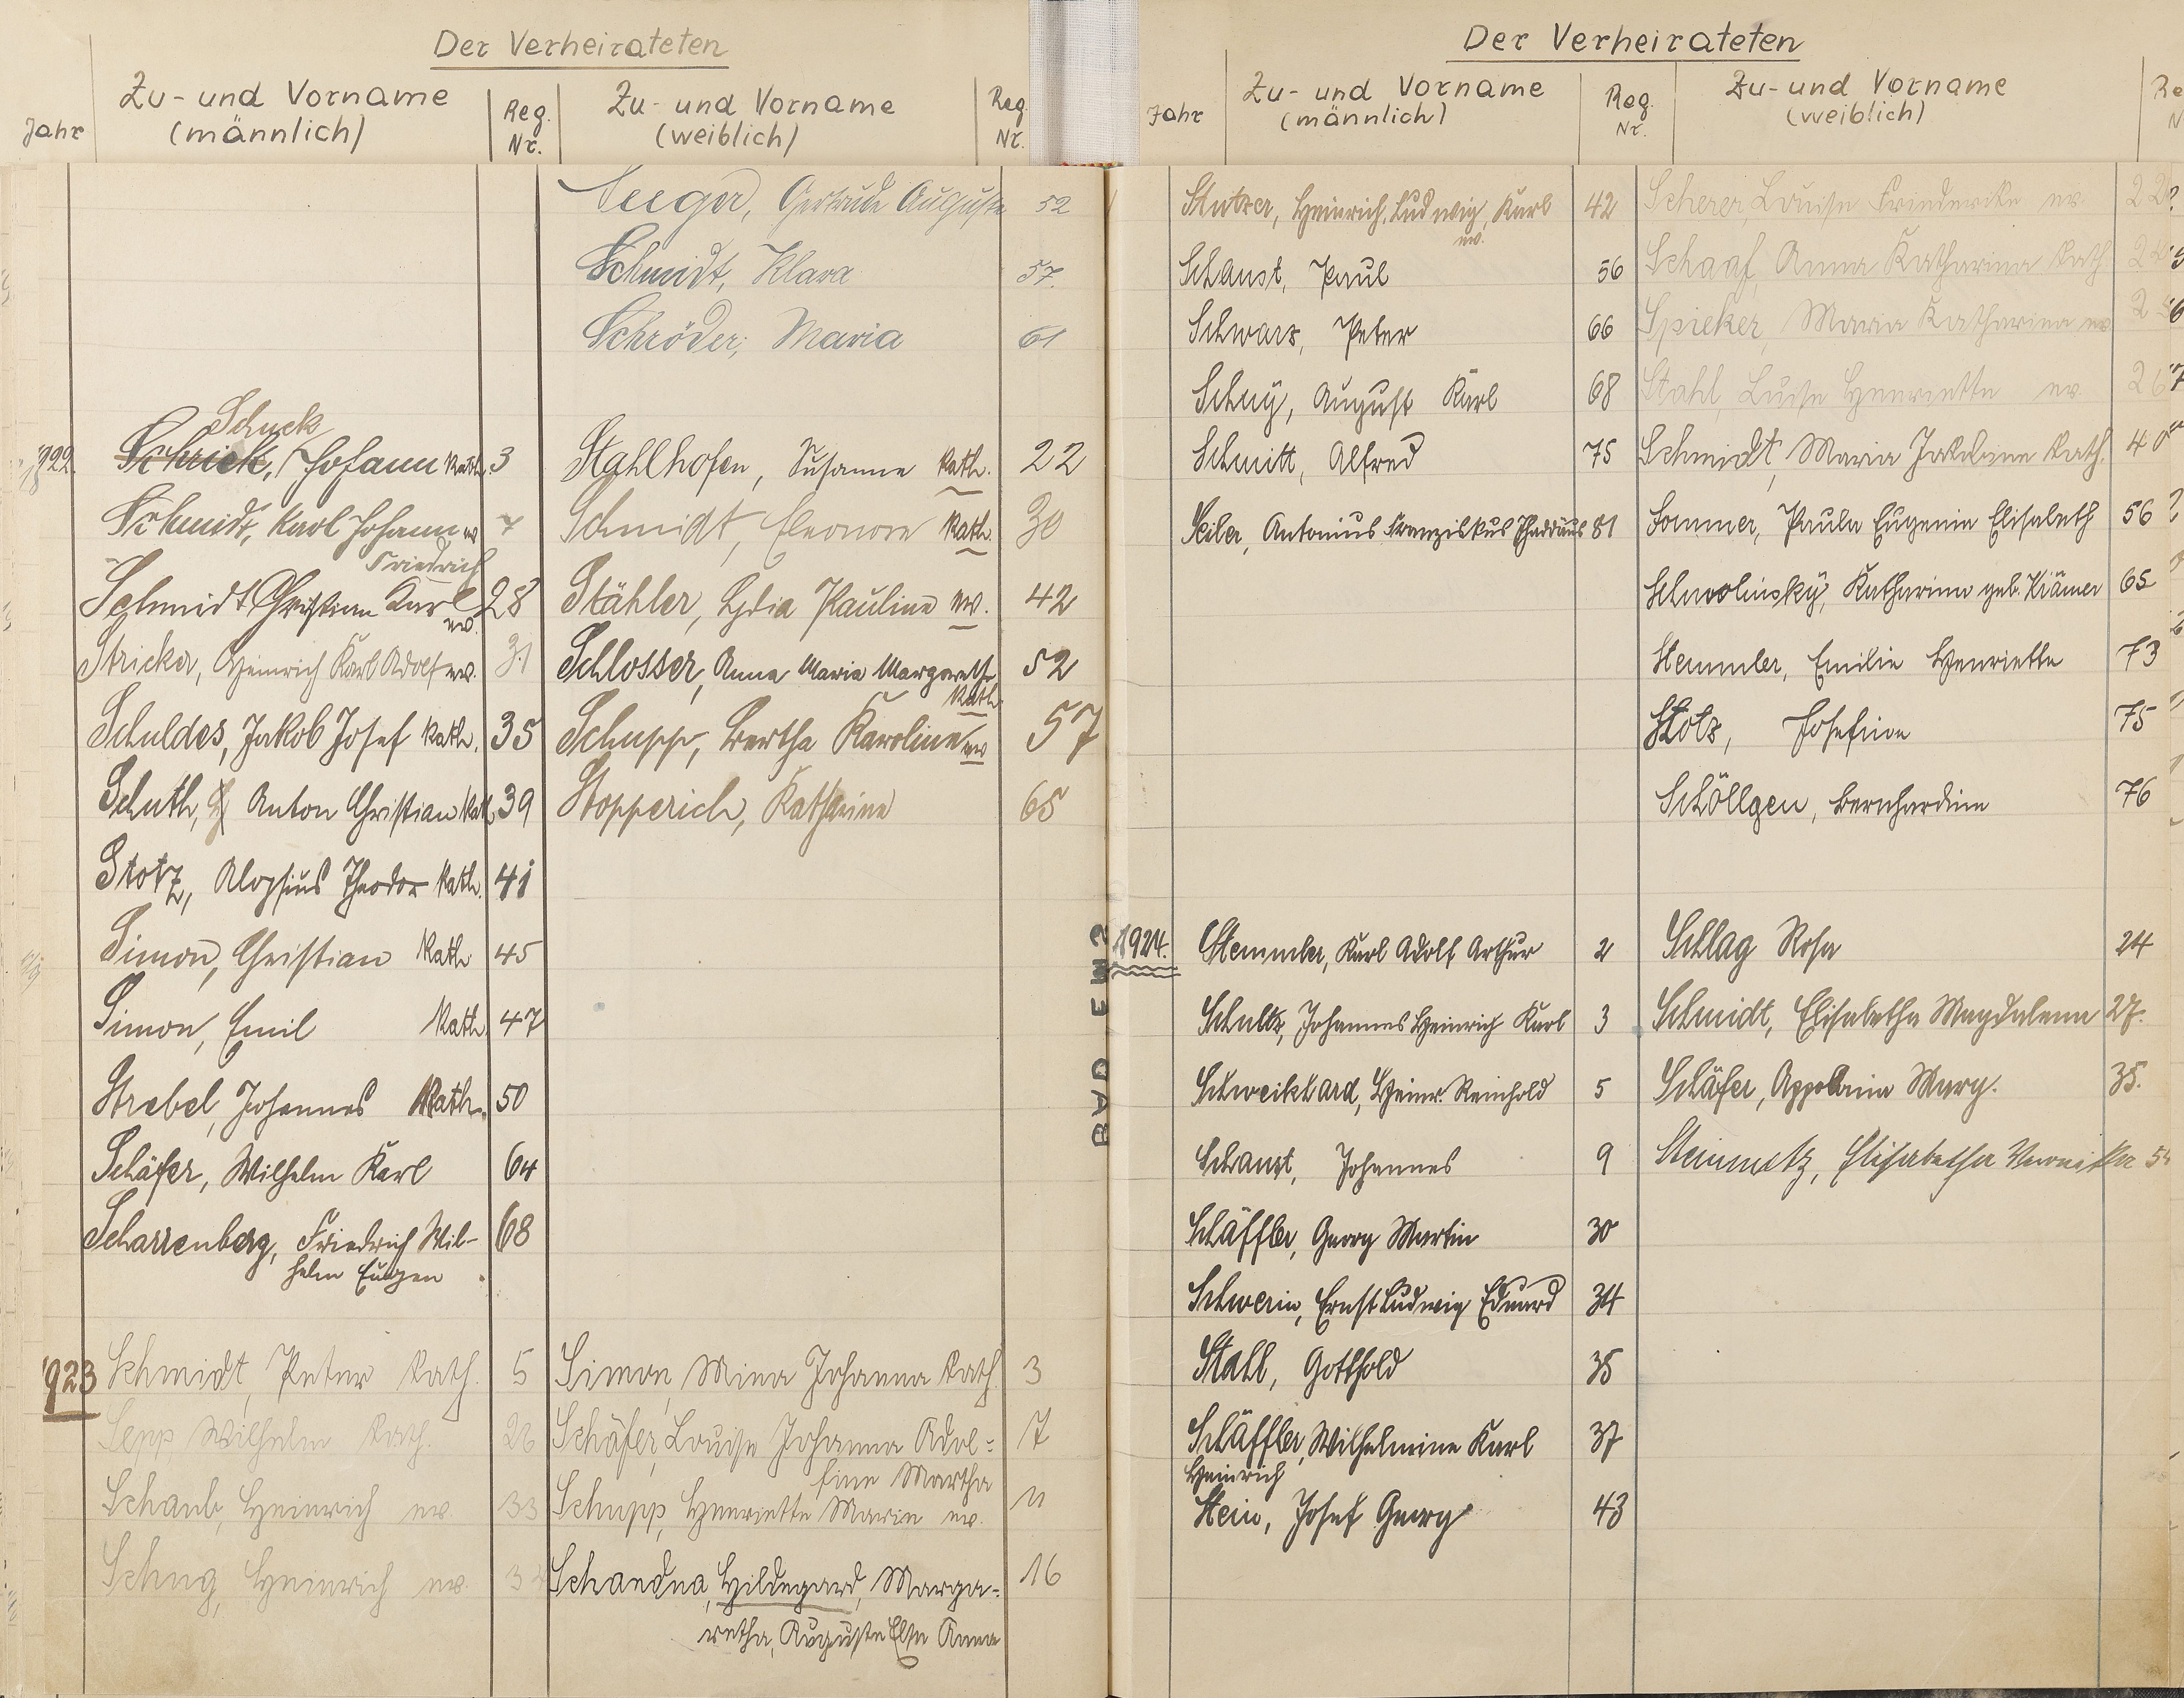 Der Verheirateten
Jahr
Zu- und Vorname
(männlich)
Reg.
Nr.
Zu- und Vorname
(weiblich)
Reg.
Nr.
Seeger, Gertrude Auguste 52
Schmidt, Klara 57.
Schröder, Maria 61
Schuck
1922. Schrick, Johann kath. 3 Stahlhofen, Susanne kath. 22
Schmidt, Karl Johann ev 7 Schmidt, Eleonore kath. 30
Friedrich
Schmidt Christian Karl 28 Stähler, Lydia Pauline ev. 42
ev.
Stricker, Heinrich Karl Adolf ev. 31 Schlosser, Anna Maria Margarethe 52
kath.
Schuldes, Jakob Josef kath. 35 Schupp, Bertha Karoline ev 57
Schuth, Anton Christian kath 39 Stopperich, Katharine 65
Stotz, Aloysius Theodor kath. 41
Simon, Christian kath 45
Simon, Emil kath 47
Strebel, Johannes kath. 50
Schäfer, Wilhelm Karl 64
Scharrenberg, Friedrich Wil- 68
helm Eugen
1923 Schmidt, Peter kath. 5 Simon, Mina Johanna kath. 3
Sepp, Wilhelm kath. 26 Schäfer, Louise Johanna Adol= 7
fine Martha
Schaub, Heinrich ev. 33 Schupp, Henriette Marie ev. 11
Schug, Heinrich ev. Schandua, Hildegard, Marga= 16
retha, Auguste Else Anna
BAD EMS
Der Verheirateten
Jahr
Zu- und Vorname
(männlich)
Reg.
Nr.
Zu- und Vorname
(weiblich)
Re
N
Stutzer, Heinrich, Ludwig, Karl 42 Scherer, Louise Friederike ev.
ev.
Schaust, Paul 56 Schaaf, Anna Katharina kath
Schwarz, Peter 66 Spieker, Maria Katharina ev
Schuy, August Karl 68 Stahl, Luise Henriette ev.
Schmitt, Alfred 75 Schmidt, Maria Jakobine kath. 40
Seiler, Antonius Franziskus Thaddäus 81 Sommer, Paula Eugenie Elisabeth 56
Schwolinsky, Katharina geb. Krämer 65
Stemmler, Emilie Henriette 73
Stolz, Josefine 75
Schöllgen, Bernhardine 76
1924. Stemmler, Karl Adolf Arthur 2 Schlag Rosa 24
Schultz, Johannes Heinrich Karl 3 Schmidt, Elisabetha Magdalena 27.
Schweikhard, Heinr. Reinhold 5 Schäfer, Appolonia Marg. 35.
Schaust, Johannes 9 Steinmetz, Elisabetha Veronika 54
Schäffler, Georg Martin 30
Schwerin, Ernst Ludwig Eduard 34
Stall, Gotthold 35
Schäffler, Wilhelmine Karl 37
Heinrich
Stein, Josef Georg 43